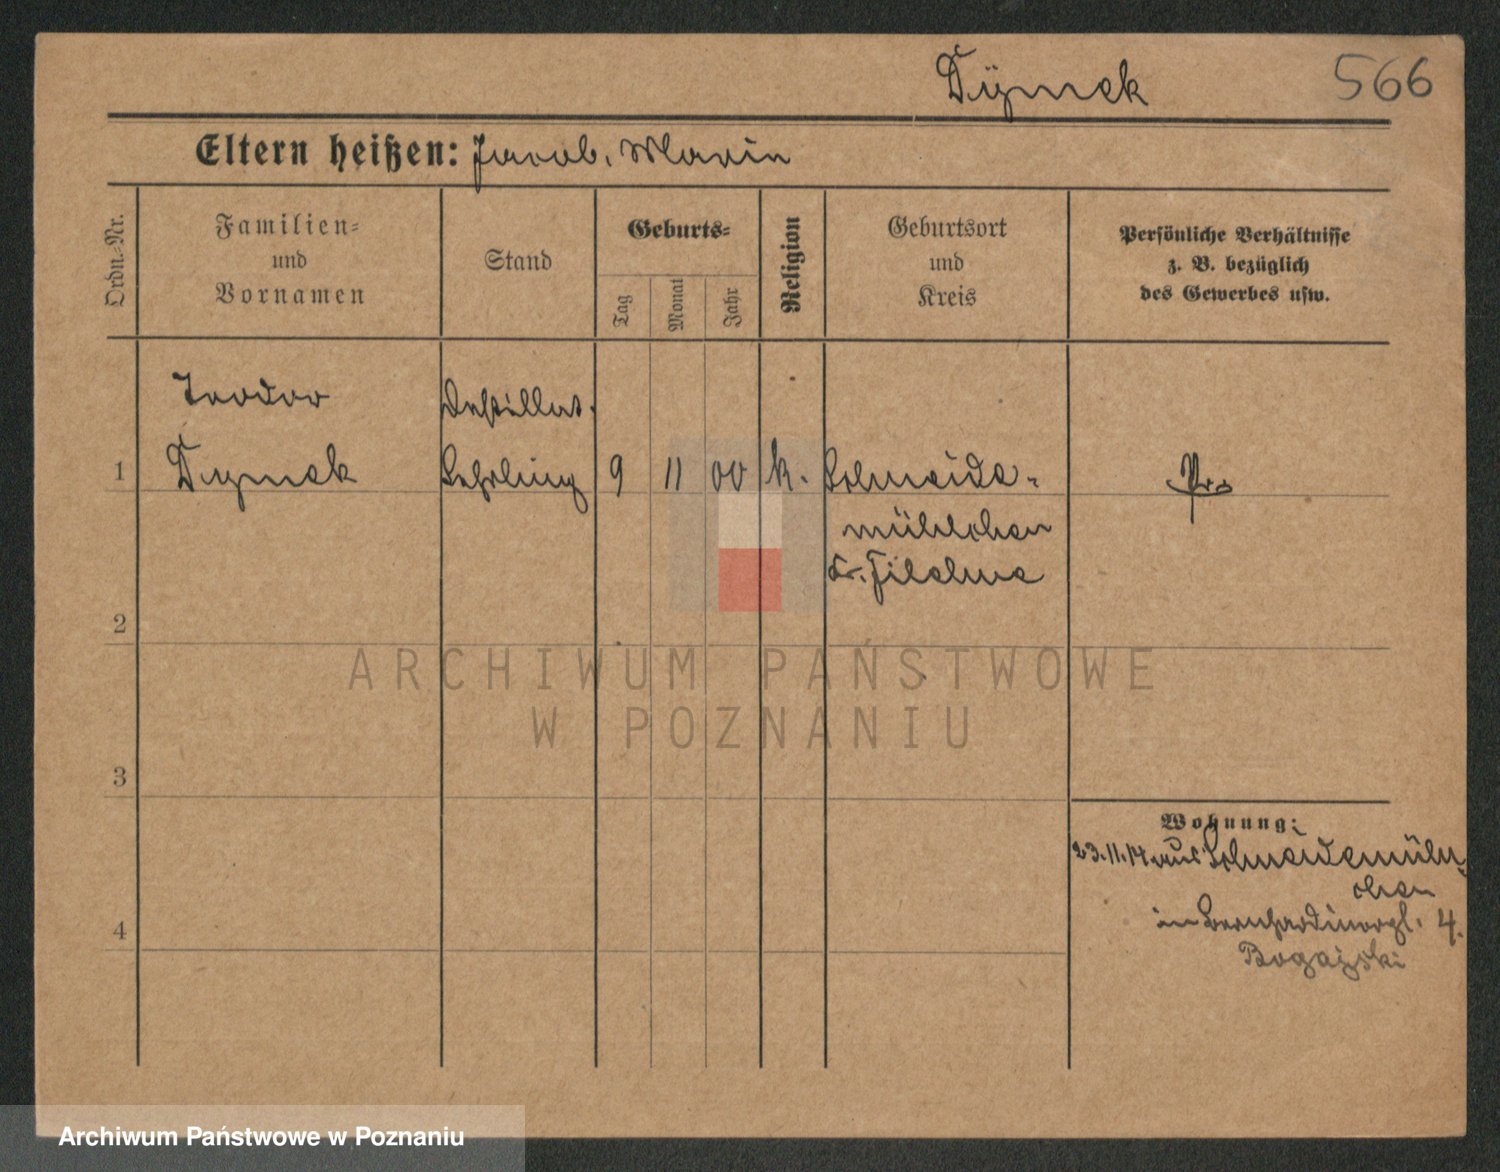 Dÿmek 566
Eltern heißen: Jacob, Marie
Ordn.-Nr.
Familien-
und
Vornamen
Stand
Geburts-
Tag
Monat
Jahr
Religion
Geburtsort
und
Kreis
Persönliche Verhältnisse
z. B. bezüglich
des Gewerbes usw.
Teodor Destillat.
1 Dymek Lehrling 9 11 00 k. Schneide- Pr.
mühlchen
Kr. Filehne
2
3
4
Wohnung:
23.11.14 aus Schneidemühl-
chen
in Bernhardinerpl. 4.
Bogajski
ARCHIWUM PAŃSTWOWE
W POZNANIU
Archiwum Państwowe w Poznaniu